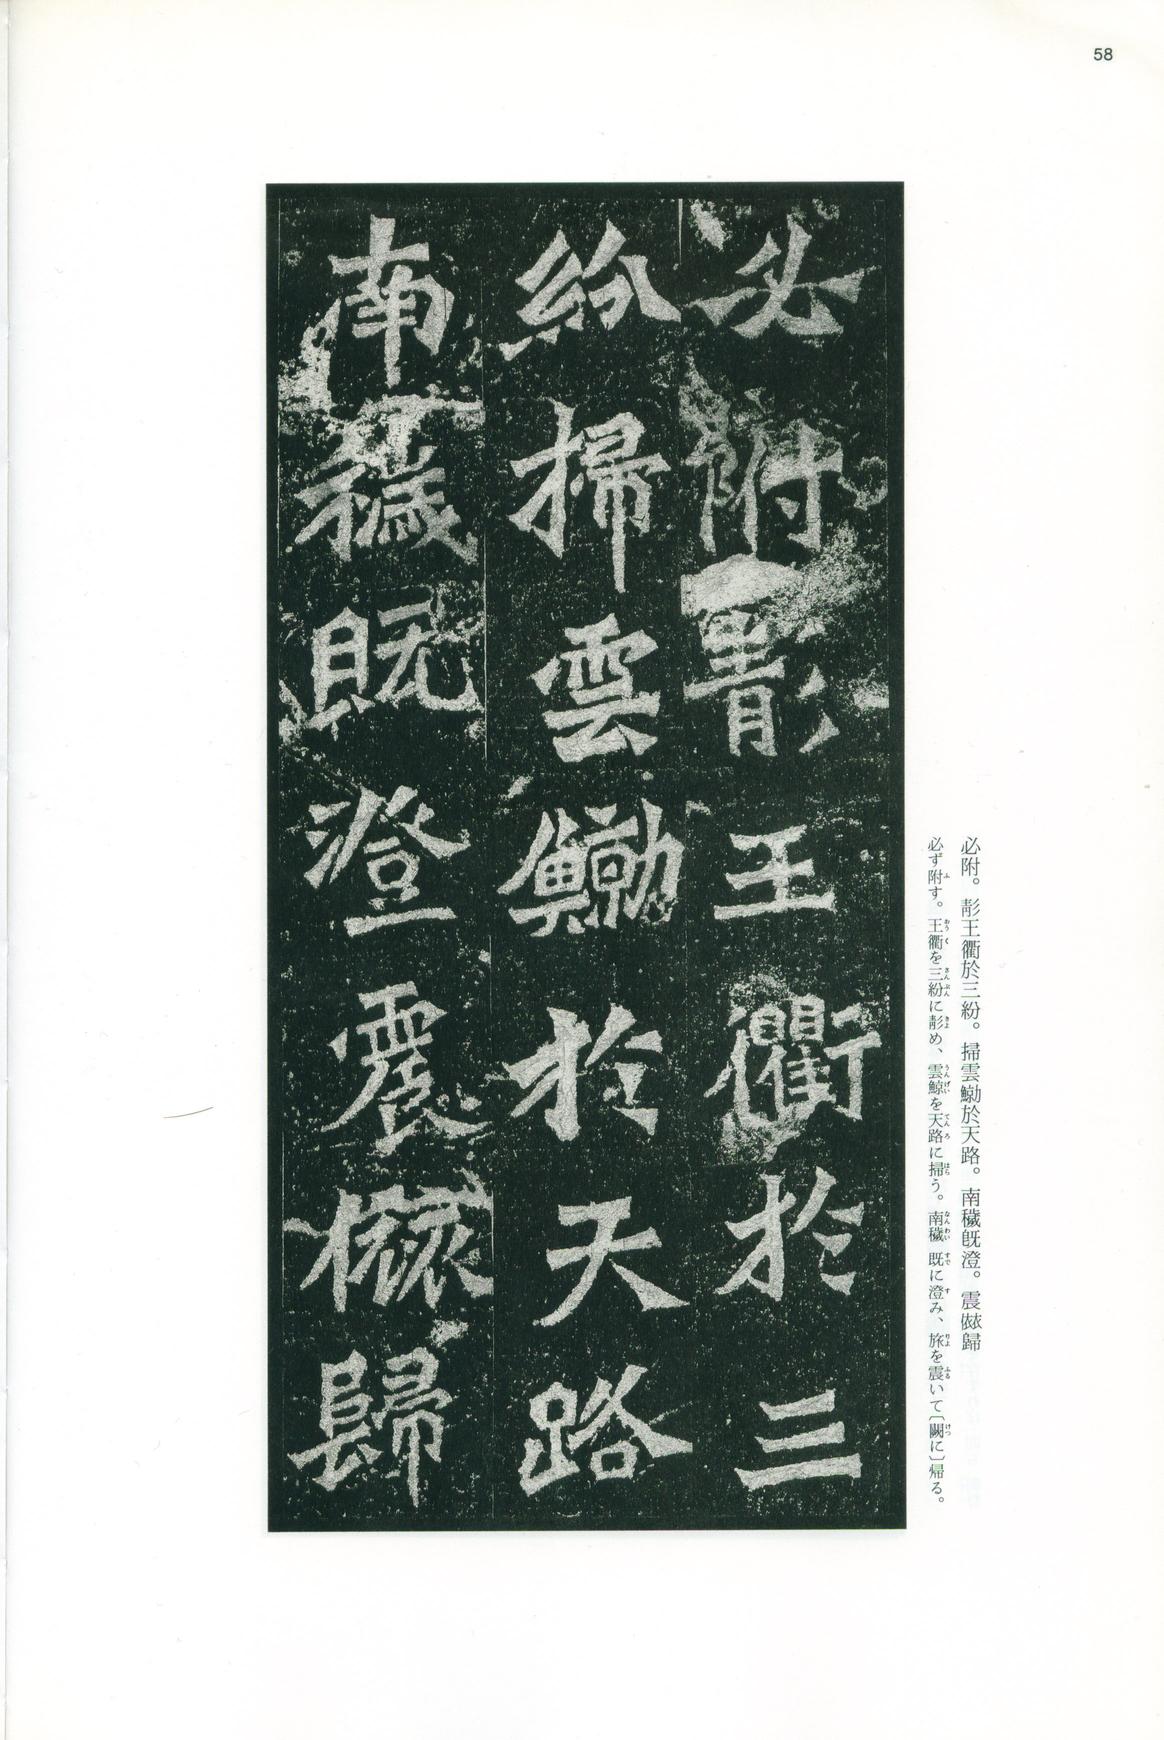 58
必附。彰王衢於三紛。掃雲鯏於天路。南穢既澄。震旅歸
必ず附す。王衢を三紛に彰め、雲鯨を天路に掃う。南穢既に澄み、旅を震いて〔闕に〕帰る。
必附彰王衢於三
紛掃雲於天路
南穢既澄震歸